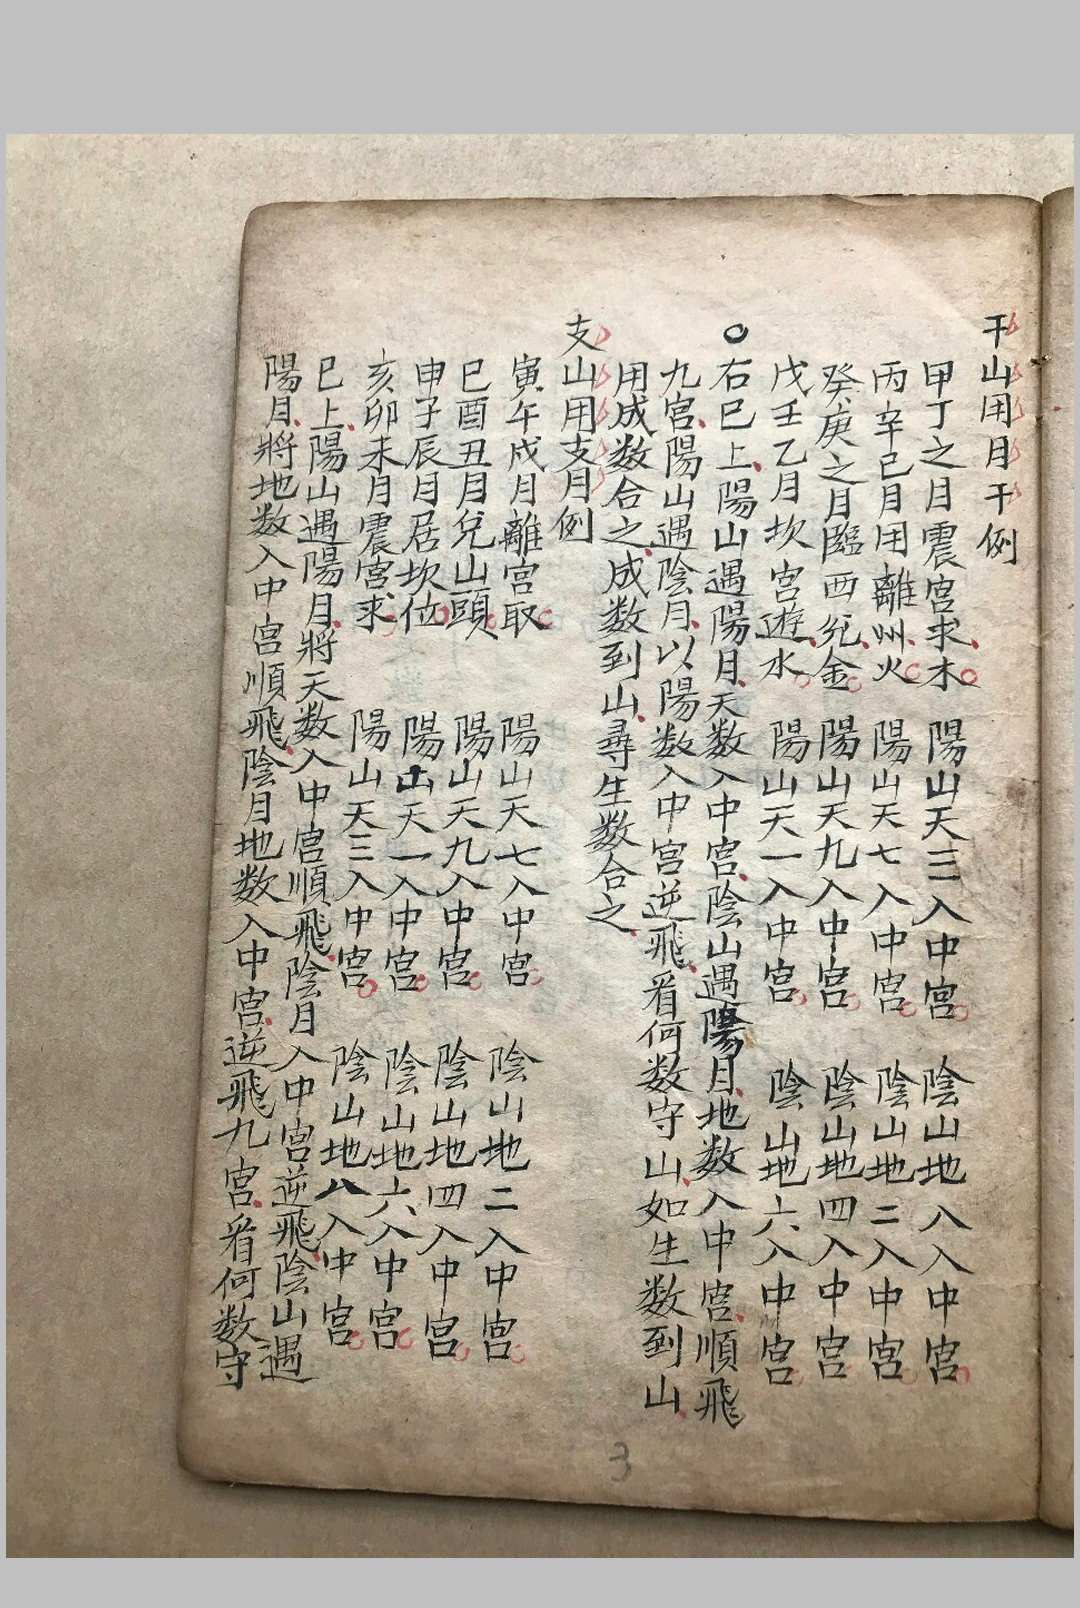 干山用月干例
甲丁之月震宮求木 陽山天三入中宮 陰山地八入中宮
丙辛己月用離州火 陽山天七入中宮 陰山地二入中宮
癸庚之月臨西兌金 陽山天九入中宮 陰山地四入中宮
戊壬乙月坎宮遊水 陽山天一入中宮 陰山地六入中宮
〇右巳上陽山遇陽月天数入中宮陰山遇陽月地数入中宮順飛
九宮陽山遇陰月以陽数入中宮逆飛看何数守山如生数到山
用成数合之成数到山尋生数合之
支山用支月例
寅午戌月離宮取 陽山天七入中宮 陰山地二入中宮
巳酉丑月兌山頭 陽山天九入中宮 陰山地四入中宮
申子辰月居坎位 陽山天一入中宮 陰山地六入中宮
亥卯未月震宮求 陽山天三入中宮 陰山地八入中宮
巳上陽山遇陽月將天数入中宮順飛陰月入中宮逆飛陰山遇
陽月將地数入中宮順飛陰月地数入中宮逆飛九宮看何数守
3